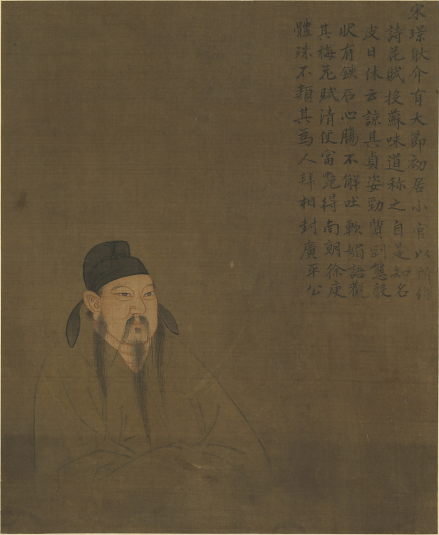 宋璟耿介有大節初居小官以所
詩花賦投蘇味道稱之自是知名
皮日休云諒其貞姿勁質剛態毅
狀有鉄石心膓不解吐軟媚語觀
其梅花賦清便富艶得南朝徐庾
體殊不類其爲人拜相封廣平公